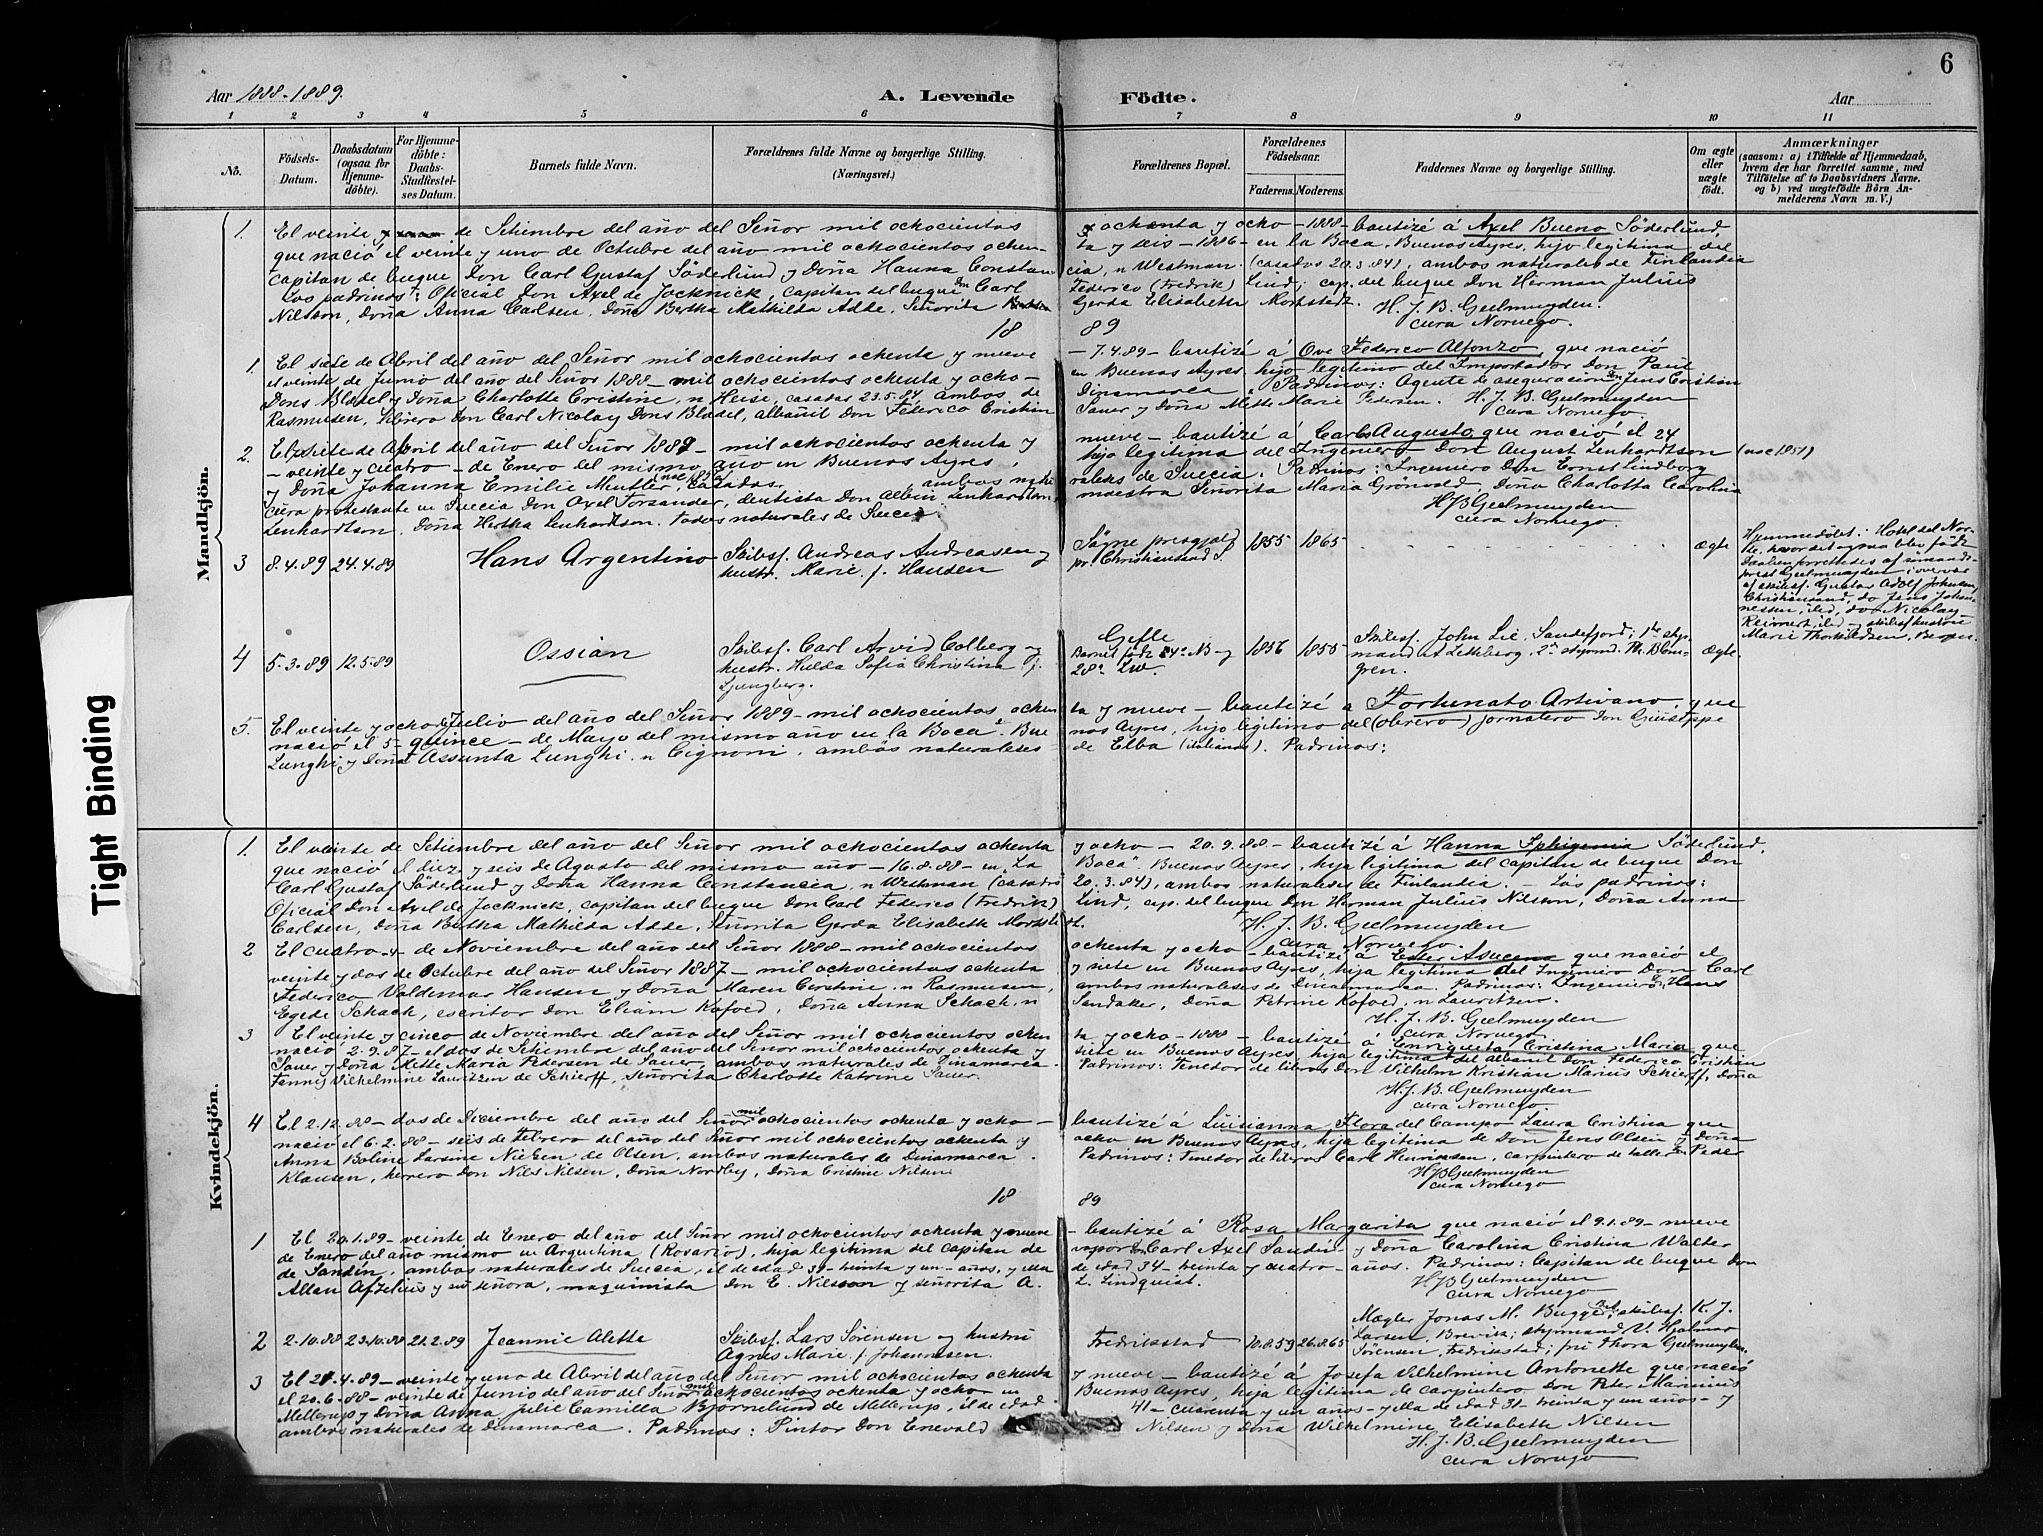 6
Aar 1888-1889.
A. Levende
Födte.
Aar
1 2 3 4 5 6 7 8 9 10 11
No.
Födsels-Datum.
Daabsdatum (ogsaa for Hjemme-döbte).
For Hjemme-döbte: Daabs-Stadfæstel-ses Datum.
Barnets fulde Navn.
Forældrenes fulde Navne og borgerlige Stilling.
(Næringsvei.)
Forældrenes Bopæl.
Forældrenes Födselsaar.
Faderens. Moderens.
Faddernes Navne og borgerlige Stilling.
Om ægte eller uægte födt.
Anmærkninger
(saasom: a) i Tilfælde af Hjemmedaab, hvem der har forrettet samme, med Tilföielse af to Daabsvidners Navne. og b) ved uægtefödte Börn An-melderens Navn m. V.)
Mandkjön.
1. El veinte de Setiembre del año del Señor mil ochocientos ochenta y ocho - 1888 - bautizé á Axel Bueno Söderlund,
que nació el veinte y uno de Octubre del año mil ochocientos ochen-ta y seis - 1886 - en la Boca, Buenos Ayres, hijo legitimo del
capitan de buque Don Carl Gustaf Söderlund y Doña Hanna Constan-cia, n Westman. (casados 20.3.84), ambos naturales de Finlandia
Los padrinos: Oficial Don Axel de Jocknick, capitan del buque Don Carl Federico (Fredrik) Lind, cap. del buque Don Herman Julius
Nilsson, Doña Anna Carlsen, Doña Bertha Mathilda Adde, Señorita Gerda Elisabeth Mortstedt.
H. J. B. Geelmuyden.
cura Noruego.
18 89
1. El siete de Abril del año del Señor mil ochocientos ochenta y nueve - 7.4.89 - bautizé á Ove Federico Alfonzo, que nació
el veinte de Junio del año del Señor 1888 - mil ochocientos ochenta y ocho - en Buenos Ayres, hijo legitimo del Importador Don Paul
Dons Blædel y Doña Charlotte Cristine, n Heise, casados 23.5.84, ambos de Dinamarca. Padrinos: Agente de aseguracion Don Jens Cristian
Rasmusen, librero Don Carl Nicolay Dons Blædel, albañil Don Federico Cristian Sauer y Doña Mette Marie Pedersen. H. J. B. Geelmuyden
cura Noruego.
2. El siete de Abril del año del Señor 1889 - mil ochocientos ochenta y nueve - bautizé á Carlos Augusto que nació el 24
- veinte y cuatro - de Enero del mismo año en Buenos Ayres, hijo legitimo del Ingeniero Don August Lenhardtson (nac 1851)
y Doña Johanna Emilie Meutler, casados, ambos naturales de Suecia. Padrinos: Ingeniero Don Ernst Lindborg
cura protestante en Suecia Don Axel Forsander, dentista Don Albin Lenhardtson maestra Señorita Maria Grönvald, Doña Charlotta Carolina
Lenhardtson, Doña Hertha Lenhardtson. Todos naturales de Suecia.
HJBGeelmuyden
cura Noruego.
3 8.4.89 24.4.89 Hans Argentino Skibsf. Andreas Andreasen og hustr. Marie f. Hansen Sögne presgjæld pr. Christianssand S. 1855 1865 ægte
Hjemmedöbt. Hotel del Norte, hvor det ogsaa blev födt. Daaben forrettedes af sömandsprest Geelmuyden i overvær af skibsf. Gustav Adolf Johnsen, Christianssand, do Jens Johannessen, ibid, do Nicolay Reinert, ibd, og skibsf hustru Marie Thorkildsen, Bergen.
4 5.3.89 12.5.89 Ossian Skibsf. Carl Arvid Colberg og hustr. Hulda Sofia Christina f. Ljungberg. Gefle Barnet födt 34° NB og 28° Lw. 1856 1855 Skibsf. John Lie, Sandefjord; 1ste styrmand, 2n styrmd. Blomgren. ægte
5. El veinte y ocho de Julio del año del Señor 1889 - mil ochocientos ochen-ta y nueve - bautizé a Fortunato Artivano, que
nació el 5 - quince - de Mayo del mismo año en la Boca. Bue-nos Ayres, hijo legitimo del (obrero) jornalero Don Giuseppe
Lunghi y Doña Assunta Lunghi. n Cignoni, ambos naturales de Elba (italianos). Padrinos:
Kvindekjön.
1. El veinte de Setiembre del año del Señor mil ochocientos ochenta y ocho - 20.9.88 - bautizé á Hanna Iphigenia Söderlund,
que nació el diez y seis de Agosto del mismo año - 16.8.88 - en "La Boca" Buenos Ayres, hija legitima del capitan de buque Don
Carl Gustaf Söderlund y Doña Hanna Constancia, n Westman (casados 20.3.84), ambos naturales de Finlandia. - Los padrinos:
Oficial Don Axel de Jocknick, capitan del buque Don Carl Federico (Fredrik) Lind, cap. del buque Don Herman Julius Nilsson, Doña Anna
Carlsen, Doña Bertha Mathilda Adde, Señorita Gerda Elisabeth Mortstedt.
H. J. B. Geelmuyden
cura Noruego.
2 El cuatro - 4 - de Noviembre del año del Señor 1888 - mil ochocientos ochenta y ocho - bautizé á Ester Asucena que nació el
veinte y dos de Octubre del año del Señor 1887 - mil ochocientos ochenta y siete en Buenos Ayres, hija legitima del Ingeniero Don Carl
Federico Valdemar Hansen y Doña Maren Cirstine n Rasmusen, ambos naturales de Dinamarca. Padrinos: Ingeniero Don Hans
Egede Schack, escritor Don Eliam Kofoed, Doña Anna Schack, n Sandaker, Doña Petrine Kofoed, n Lauritzen.
H. J. B. Geelmuyden
cura Noruego
3 El veinte y cinco de Noviembre del año del Señor mil ochocientos ochen-ta y ocho - 1888 - bautizé á Enriqueta Cristina Maria, que
nació 2.9.87 - el dos de Setiembre del año del Señor mil ochocientos ochenta y siete en Buenos Ayres, hija legitima del albañil Don Federico Cristian
Sauer y Doña Mette Maria Petersen de Sauer, ambos naturales de Dinamarca. Padrinos: Tenedor de libros Don Vilhelm Kristian Marius Schierff, Doña
Fenny Vilhelmine Lauritzen de Schierff, señorita Charlotte Katrine Sauer.
H. J. B. Geelmuyden
cura Noruego.
4 El 2.12.88 - dos de Diciembre del año del Señor mil ochocientos ochenta y ocho - bautizé á Luisianna Flora del Campo Laura Cristina que
nació el 6.2.88 - seis de Febrero del año del Señor mil ochocientos ochenta y ocho en Buenos Ayres, hija legitima de Don Jens Olsen y Doña
Anna Boline Larsine Nielsen de Olsen, ambos naturales de Dinamarca. Padrinos: Tenedor de libros Carl Henriksen, carpintero de taller Don Peder
Klausen, herrero Don Nils Nilsen, Doña Nordby, Doña Cristine Nilsen
HJBGeelmuyden
cura Noruego
18 89
1 El 20.1.89 - veinte de Enero del año del Señor mil ochocientos ochenta y nueve - bautizé á Rosa Margarita que nació el 9.1.89 - nueve
de Enero del año mismo en Argentina (Rosario), hija legitima del capitan de vapor Don Carl Axel Sandén y Doña Carolina Cristina Walter
de Sandén, ambos naturales de Suecia, él de edad 31 - treinta y un - años, y ella de edad 34 - treinta y cuatro - años. Padrinos: Capitan de buque Don
Allan Afzelius y su señora, maquinista Don E. Nilsson y señorita A. L. Lindquist.
HJBGeelmuyden
cura Noruego
2 2.10.88 23.10.88 21.2.89 Jeannie Alette Skibsf. Lars Sörensen og hustru Agnes Marie f. Johannesen. Fredriksstad 10.8.59 26.8.65 Mægler Jonas M. Bugge, skibsf. K. J. Larsen, Brevik; styrmand V. Hjalmar Sörensen, Fredriksstad; frú Thora Geelmuyden.
3 El 21.4.89 - veinte y uno de Abril del año del Señor mil ochocientos ochenta y nueve - bautizé á Josefa Vilhelmine Antonette que nació
el 20.6.88 - veinte de Junio del año del Señor mil ochocientos ochenta y ocho en Buenos Ayres, hija legitima de carpintero Don Peter Marinus
Mellerup y Doña Anna Julie Camilla Bjørnelund de Mellerup, él de edad 41 - cuarenta y un años - y ella de edad 31 - treinta y un años - y
ambos naturales de Dinamarca. Padrinos: Pintor Don Enevald Nilsen y Doña Wilhelmine Elisabeth Nilsen
H. J. B. Geelmuyden
cura Noruego
Tight Binding